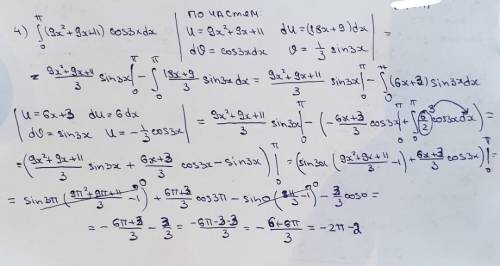 4) ∫₀^π (9x²+9x+11) cos3x dx | по частям: U = 9x²+9x+11 dU = (18x+9)dx dϑ = cos3x dx ϑ = 1/3 sin3x | =
= (9x²+9x+11)/3 sin3x |₀^π - ∫₀^π (18x+9)/3 sin3x dx = (9x²+9x+11)/3 sin3x |₀^π - ∫₀^π (6x+3) sin3x dx
| U = 6x+3 dU = 6dx dϑ = sin3x U = -1/3 cos3x | = (9x²+9x+11)/3 sin3x |₀^π - (-(6x+3)/3 cos3x |₀^π + ∫₀^π cos3x dx) =
= ((9x²+9x+11)/3 sin3x + (6x+3)/3 cos3x - sin3x) |₀^π = (sin3x ((9x²+9x+11)/3 - 1) + (6x+3)/3 cos3x) |₀^π =
= sin3π ((9π²+9π+11)/3 - 1)⁰ + (6π+3)/3 cos3π - sin0 (11/3 - 1)⁰ - 3/3 cos0 =
= -(6π+3)/3 - 3/3 = (-6π-3-3)/3 = -(6+6π)/3 = -2π-2